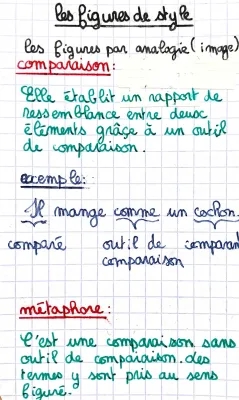 les figures de style
les figures par analogie (image)
comparaison :
Elle établit un rapport de
ressemblance entre deux
éléments grâce à un outil
de comparaison.
exemple :
Il mange comme un cochon.
comparé outil de comparant
comparaison
métaphore :
C'est une comparaison sans
outil de comparaison. les
termes y sont pris au sens
figuré.